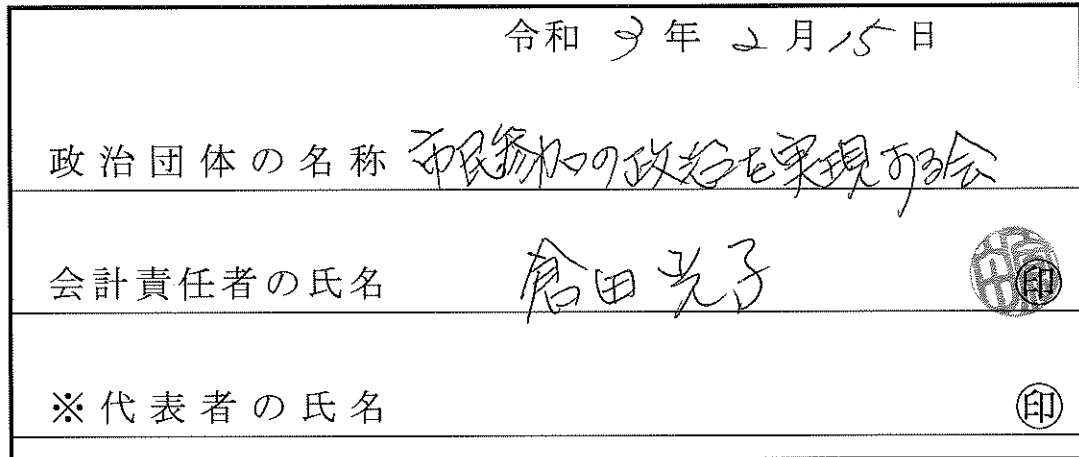 令和 3 年 2 月 15 日
政治団体の名称 市民参加の政治を実現する会
会計責任者の氏名 倉田光子 印
※代表者の氏名 印